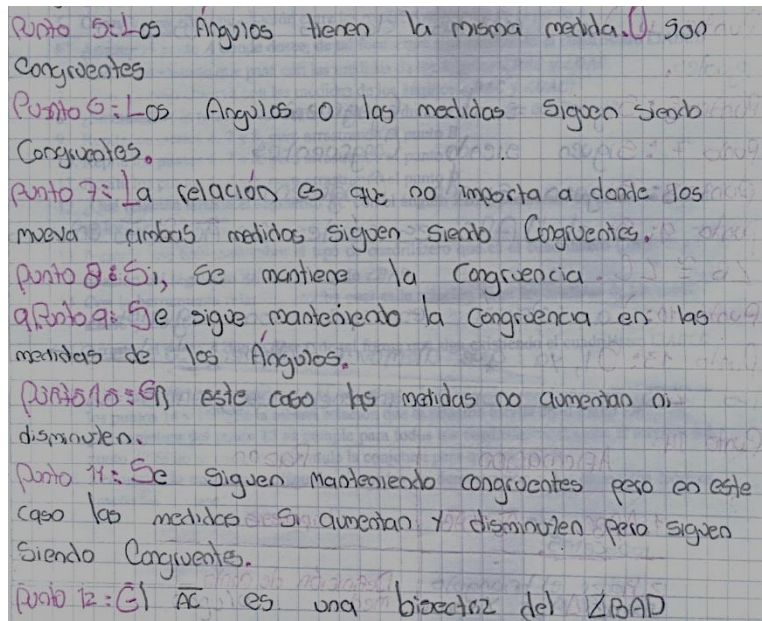 Punto 5: Los Ángulos tienen la misma medida. O son
Congruentes
Punto 6: Los Angulos o las medidas siguen siendo
Congruentes.
Punto 7: La relación es que no importa a donde los
mueva ambas medidas siguen siendo Congruentes.
Punto 8: Si, se mantiene la Congruencia
9.Punto 9: Se sigue manteniento la Congruencia en las
medidas de los Ángulos.
Punto 10: En este caso las medidas no aumentan ni
disminullen.
Punto 11: Se siguen Manteniendo congruentes pero en este
caso las medidas si aumentan y disminullen pero siguen
Siendo Congruentes.
Punto 12: El AC es una bisectoz del ∠BAD